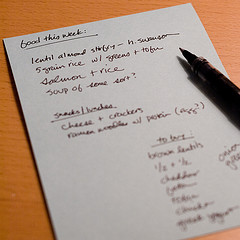 food this week:
lentil almond stirfry - h. swanson
5 grain rice w/ greens + tofu
salmon + rice
soup of some sort?
snacks/lunches
cheese + crackers
ramen noodles w/ protein (egg?)
to buy
brown lentils
1/2 + 1/2
cheddar
tofu
greek yogurt